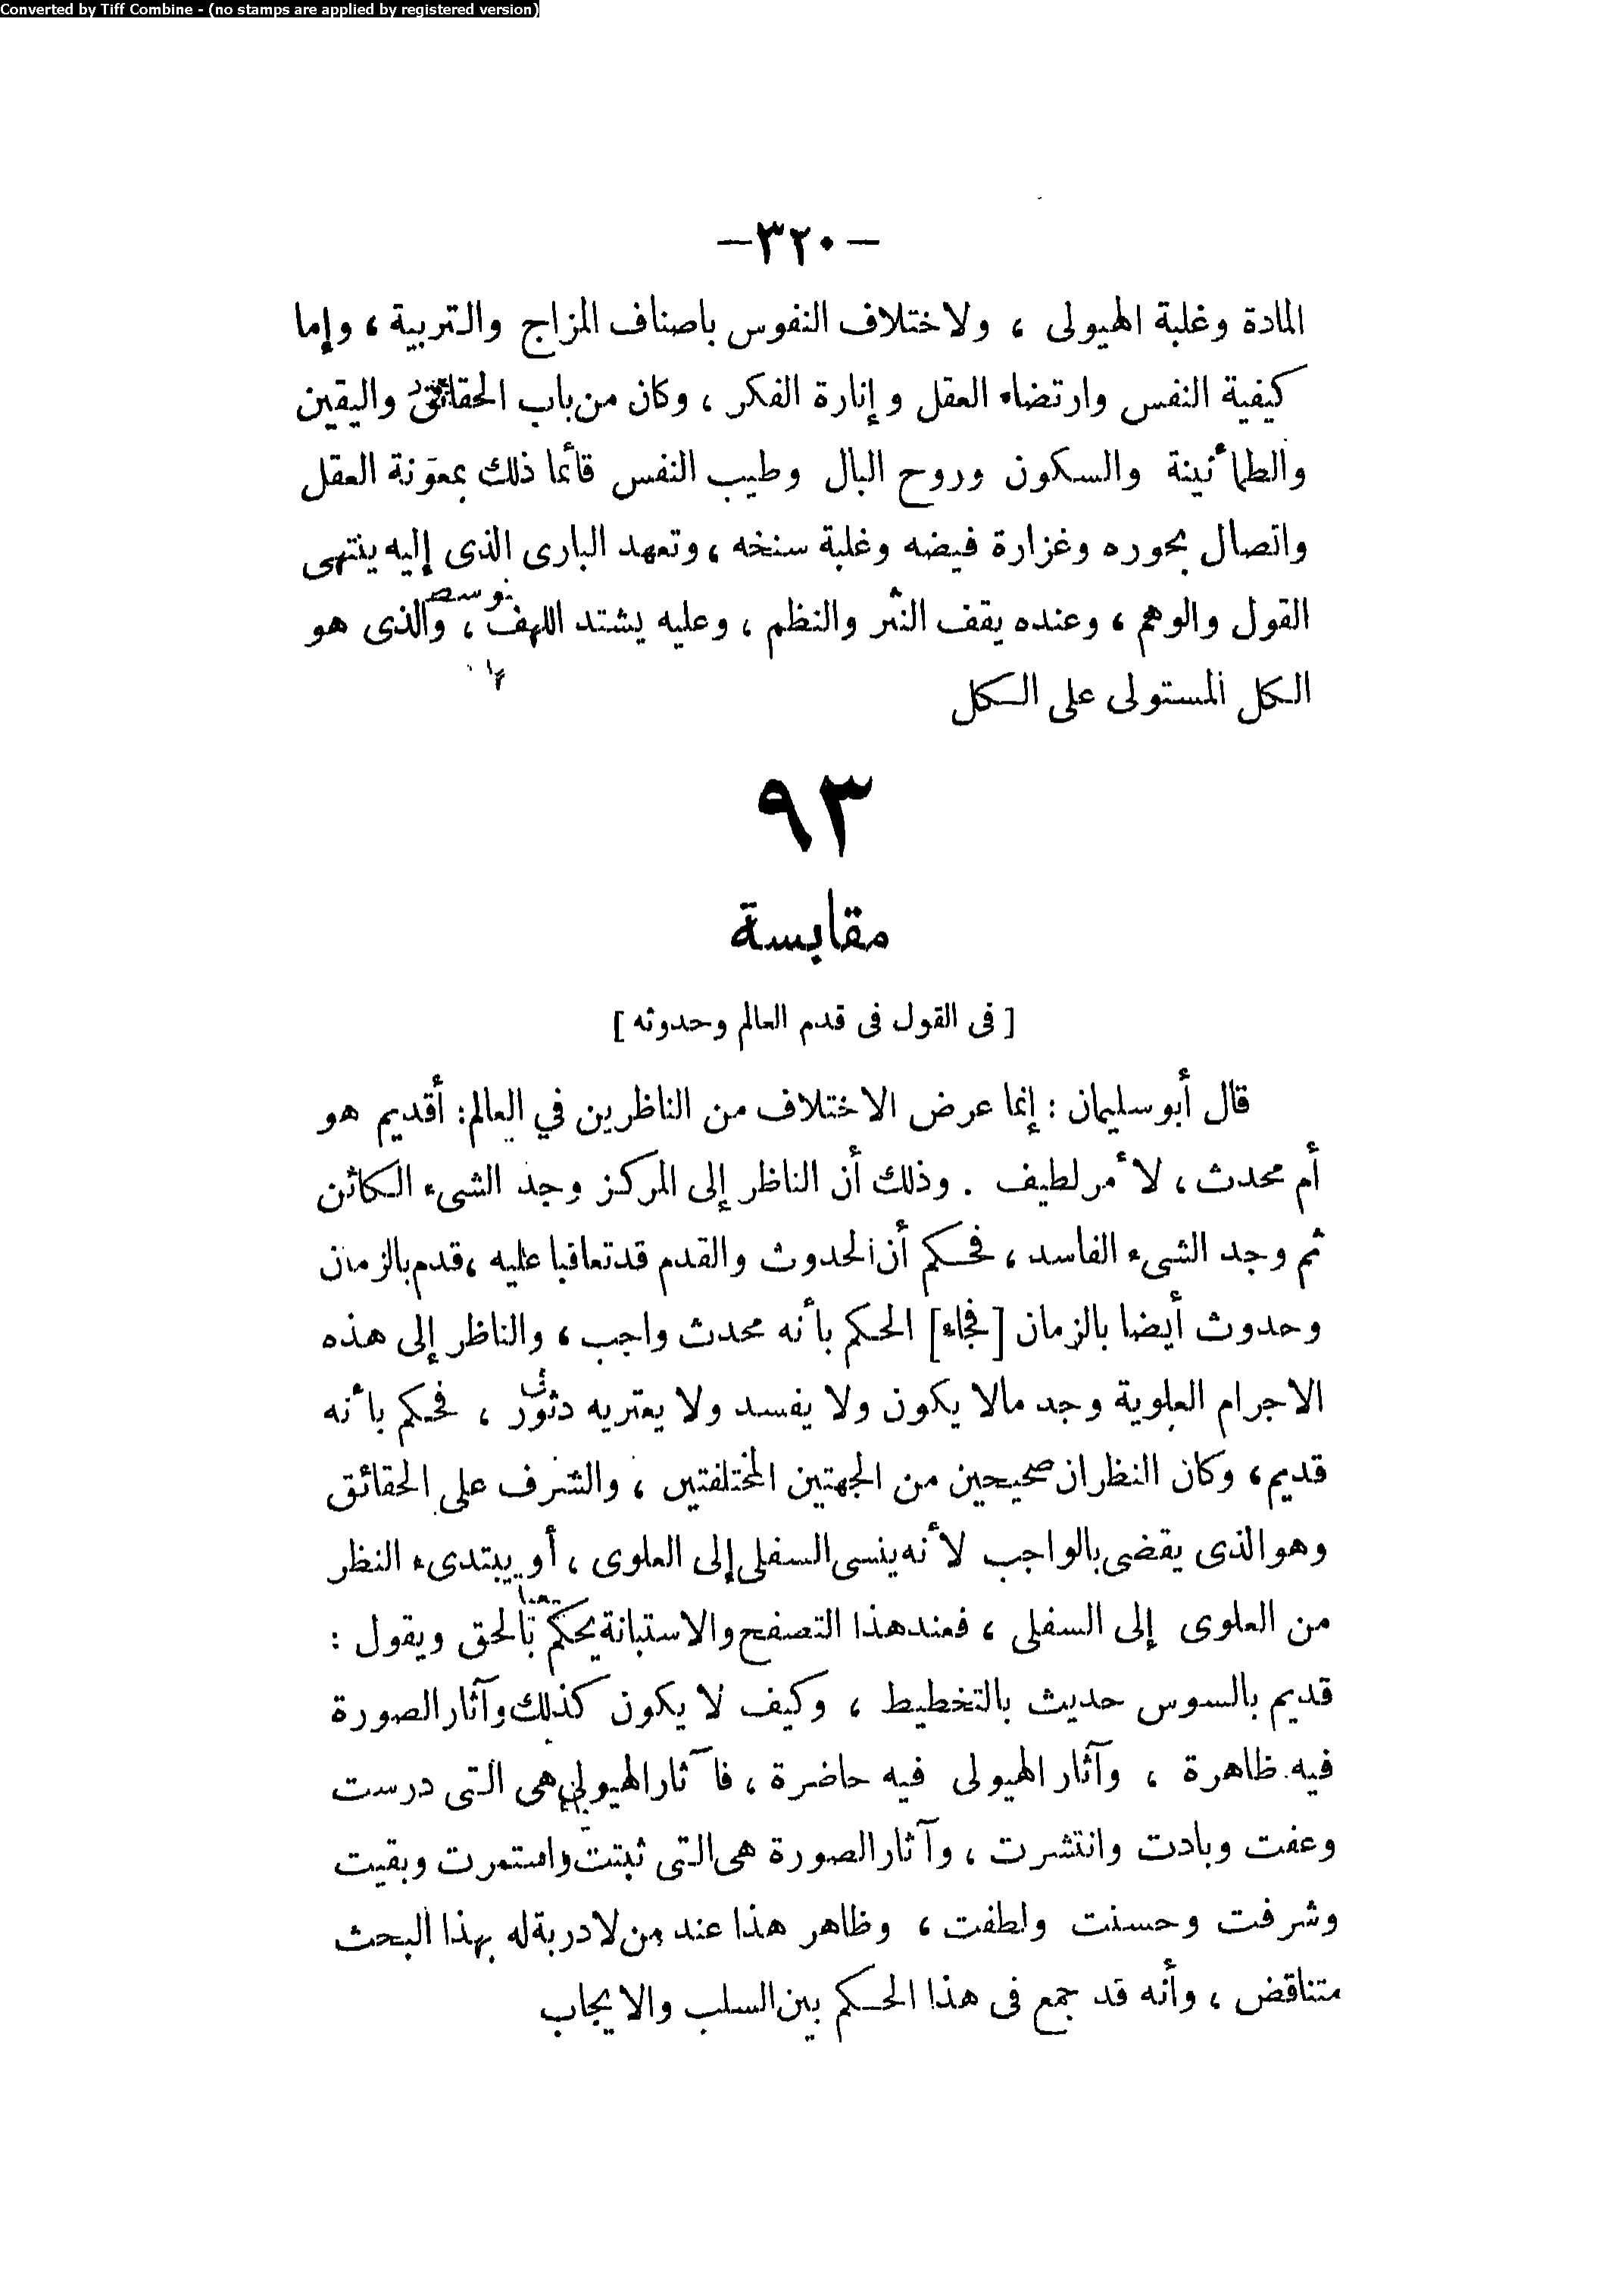 Converted by Tiff Combine - (no stamps are applied by registered version)
—٣٢٠—
المادة وغلبة الهيولى ، ولاختلاف النفوس باصناف المزاج والتربية ، وإما
كيفية النفس وارتضاء العقل وإنارة الفكر ، وكان من باب الحقائق واليقين
والطمأنينة والسكون وروح البال وطيب النفس فأنما ذلك بمعونة العقل
واتصال بحوره وغزارة فيضه وغلبة سنخه ، وتعهد البارى الذى إليه ينتهى
القول والوهم ، وعنده يقف النثر والنظم ، وعليه يشتد اللهف ، والذى هو
الكل المستولى على الكل
٩٣
مقابسة
[ فى القول فى قدم العالم وحدوثه ]
قال أبو سليمان : إنما عرض الاختلاف من الناظرين في العالم : أقديم هو
أم محدث ، لأمر لطيف . وذلك أن الناظر إلى المركز وجد الشىء الكائن
ثم وجد الشىء الفاسد ، فحكم أن الحدوث والقدم قد تعاقبا عليه ، قدم بالزمان
وحدوث أيضا بالزمان [فجاء] الحكم بأنه محدث واجب ، والناظر إلى هذه
الاجرام العلوية وجد مالا يكون ولا يفسد ولا يعتريه دثور ، فحكم بأنه
قديم ، وكان النظران صحيحين من الجهتين المختلفتين ، والشرف على الحقائق
وهو الذى يقضى بالواجب لأنه ينسى السفلى إلى العلوى ، أو يبتدىء النظر
من العلوى إلى السفلى ، فعند هذا التصفح والاستبانة يحكم بالحق ويقول :
قديم بالسوس حديث بالتخطيط ، وكيف لا يكون كذلك وآثار الصورة
فيه ظاهرة ، وآثار الهيولى فيه حاضرة ، فآثار الهيولى هى التى درست
وعفت وبادت وانتشرت ، وآثار الصورة هى التى ثبتت واستمرت وبقيت
وشرفت وحسنت ولطفت ، وظاهر هذا عند من لا دربة له بهذا البحث
متناقض ، وأنه قد جمع فى هذا الحكم بين السلب والايجاب